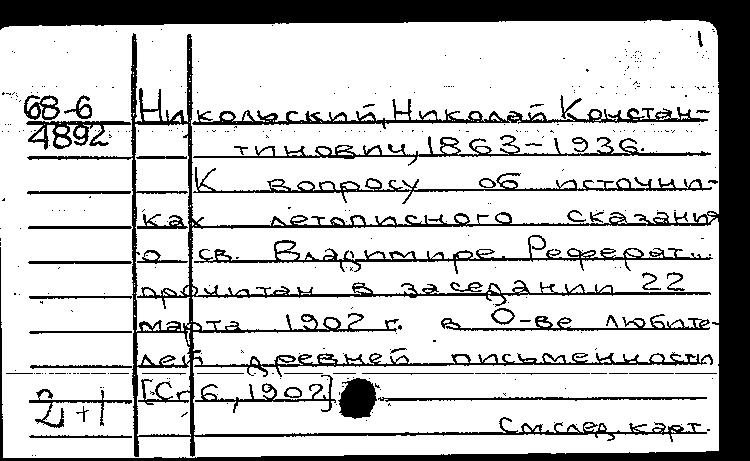 1
68-6 Никольский, Николай Констан-
4892 тинович, 1863-1936.
К вопросу об источни-
ках летописного сказания
о св. Владимире. Реферат...
прочитан в заседании 22
марта 1902 г. в О-ве любите-
лей древней письменности
[Сп б, 1902]
2+1
См. след. карт.